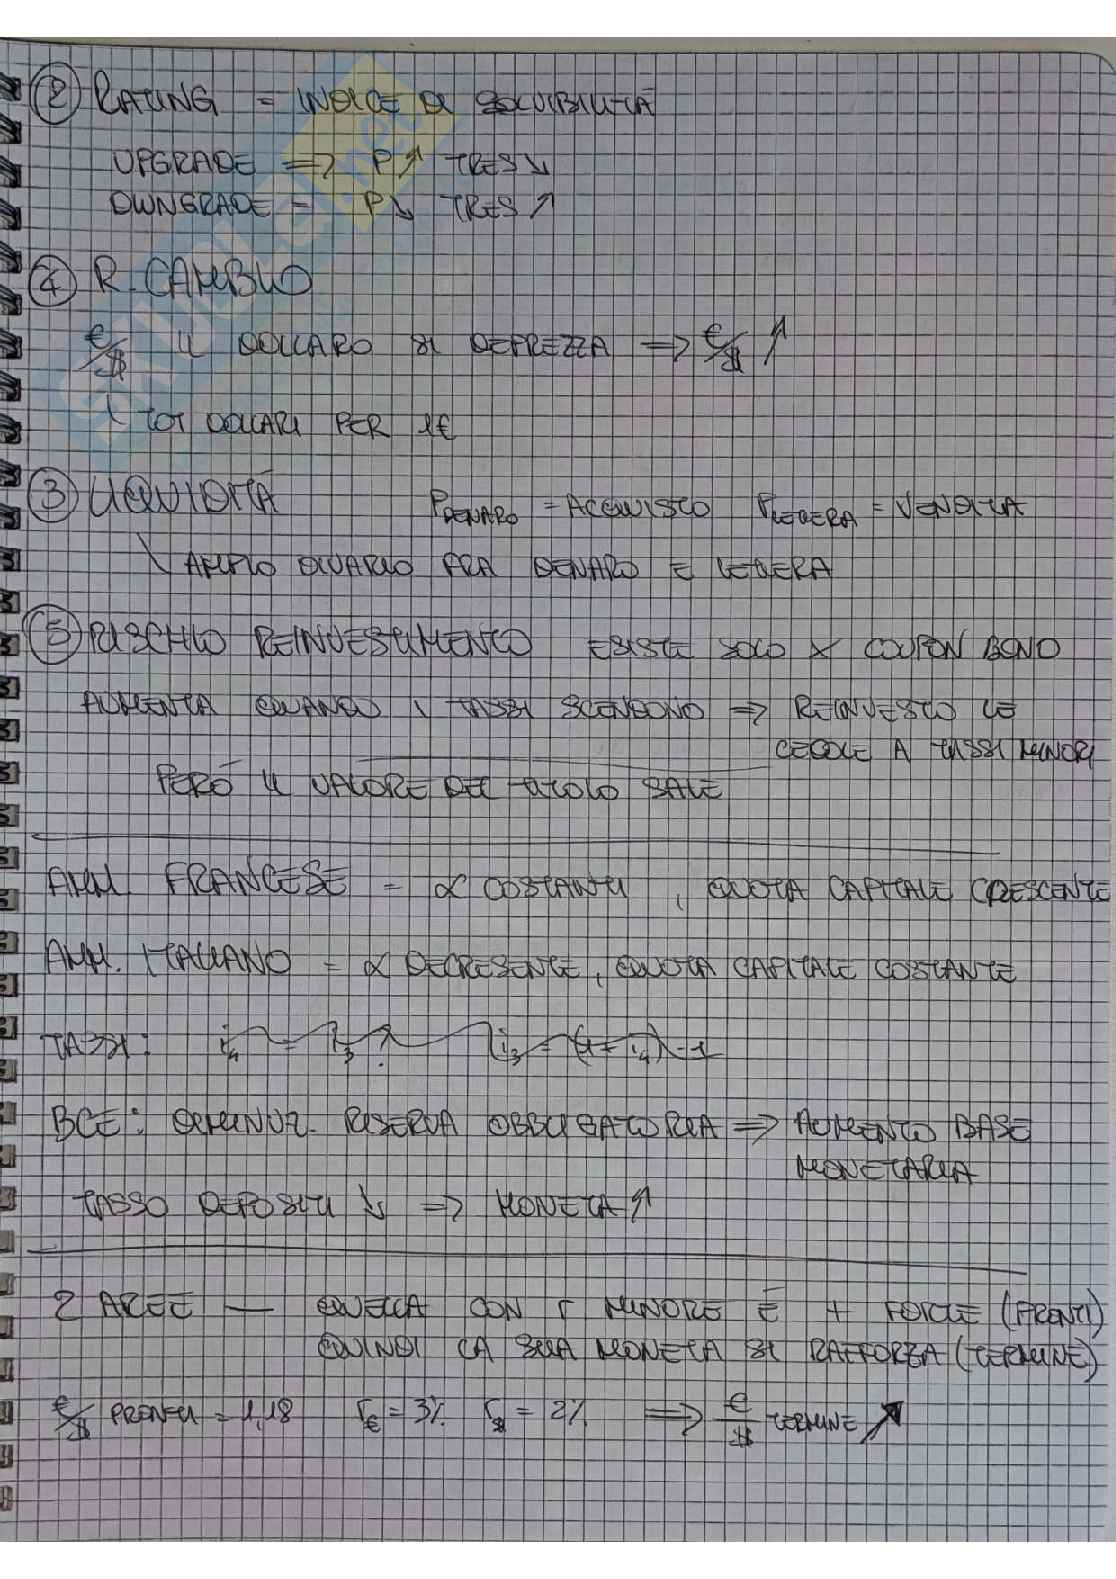 ② RATING = INDICE DI SOLVIBILITÀ
UPGRADE => P↗ TRES↘
DWNGRADE = P↘ TRES↗
④ R. CAMBIO
€/$ IL DOLLARO SI DEPREZZA => €/$ ↗
↓ TOT DOLLARI PER 1€
③ LIQUIDITÀ P DENARO = ACQUISTO P LETTERA = VENDITA
↘ AMPIO DIVARIO FRA DENARO E LETTERA
⑤ RISCHIO REINVESTIMENTO ESISTE SOLO X COUPON BOND
AUMENTA QUANDO I TASSI SCENDONO => REINVESTO LE
CEDOLE A TASSI MINORI
PERÒ IL VALORE DEL TITOLO SALE
AMM. FRANCESE = α COSTANTI, QUOTA CAPITALE CRESCENTE
AMM. ITALIANO = α DECRESENTE, QUOTA CAPITALE COSTANTE
TASSI:
BCE: DIMINUZ. RISERVA OBBLIGATORIA => AUMENTO BASE
MONETARIA
TASSO DEPOSITI ↘ => MONETA ↗
2 AREE — QUELLA CON r MINORE È + FORTE (PRONTI)
QUINDI LA SUA MONETA SI RAFFORZA (TERMINE)
€/$ PRONTI = 1,18 r€ = 3% r$ = 2% => €/$ TERMINE ↗
SKUOLA.net